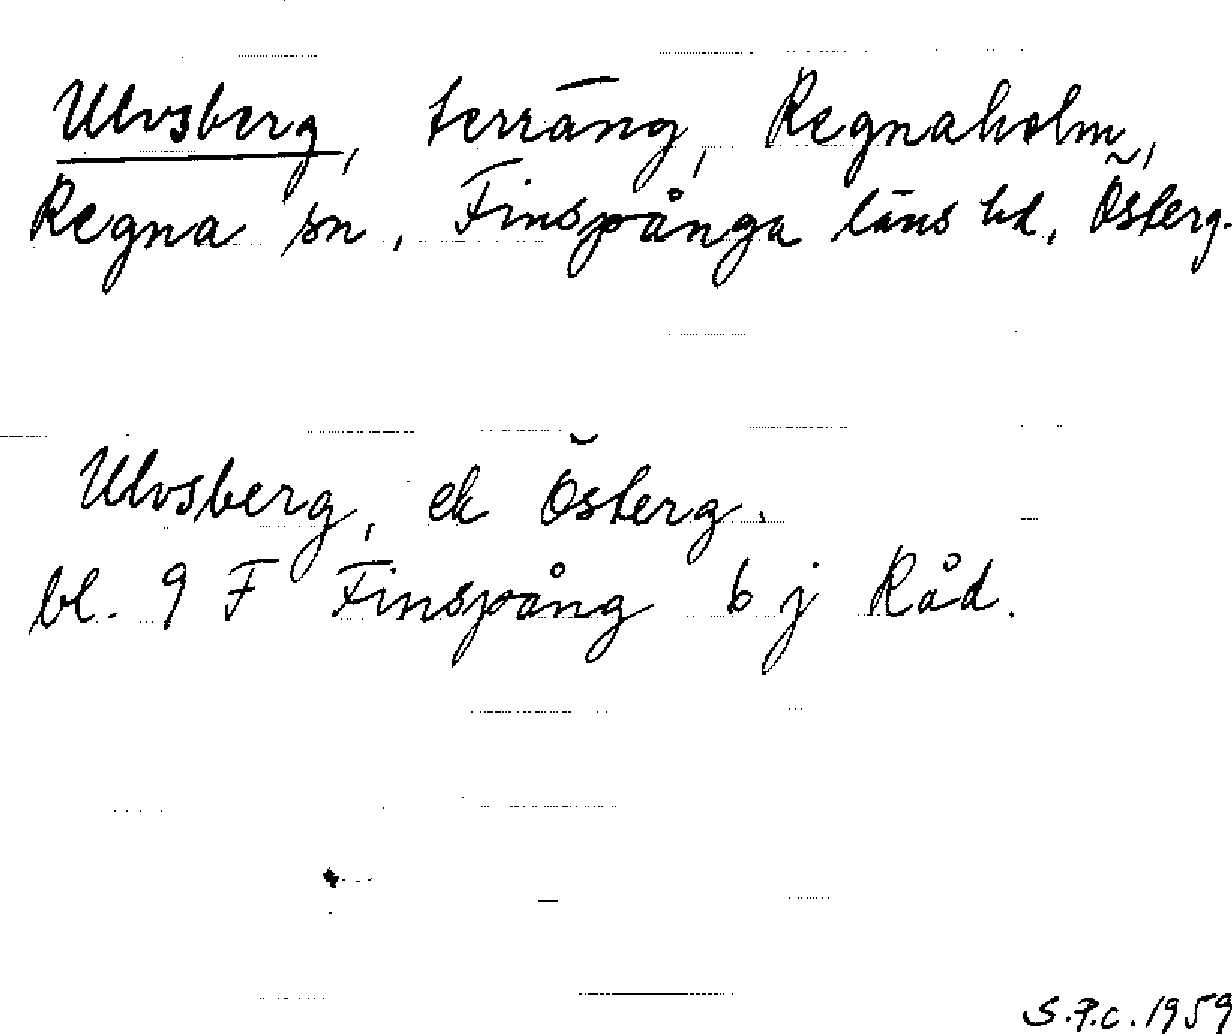 Ulvsberg, terräng, Regnaholm,
Regna sn, Finspånga läns hd, Österg.
Ulvsberg, ek Österg.
bl. 9 F Finspång b j Råd.
S.P.c. 1959